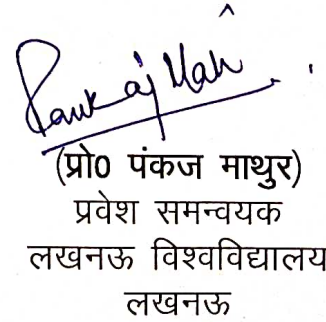 Pankaj Math
(प्रो0 पंकज माथुर)
प्रवेश समन्वयक
लखनऊ विश्वविद्यालय
लखनऊ